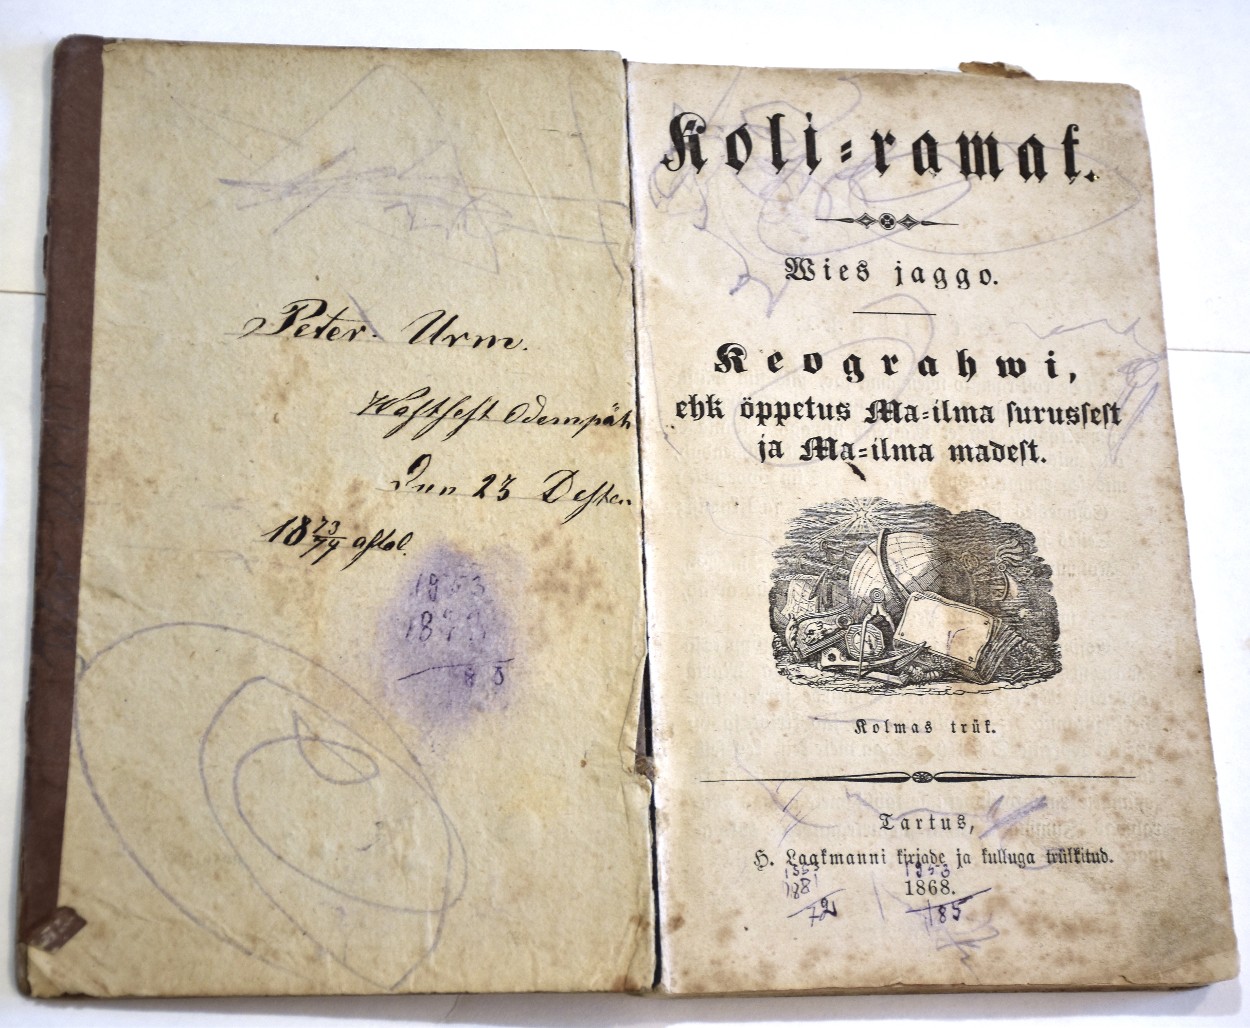 Peter Urm.
Wastsest Odempäh
Dun 23 Desten
18 73/74 astal.
1953
18
Koli-ramat.
Wies jaggo.
Keograhwi,
ehk öppetus Ma-ilma surussest
ja Ma-ilma madest.
Kolmas trük.
Tartus,
H. Laakmanni kirjade ja kulluga trükkitud.
1953
1868.
1881
72
185